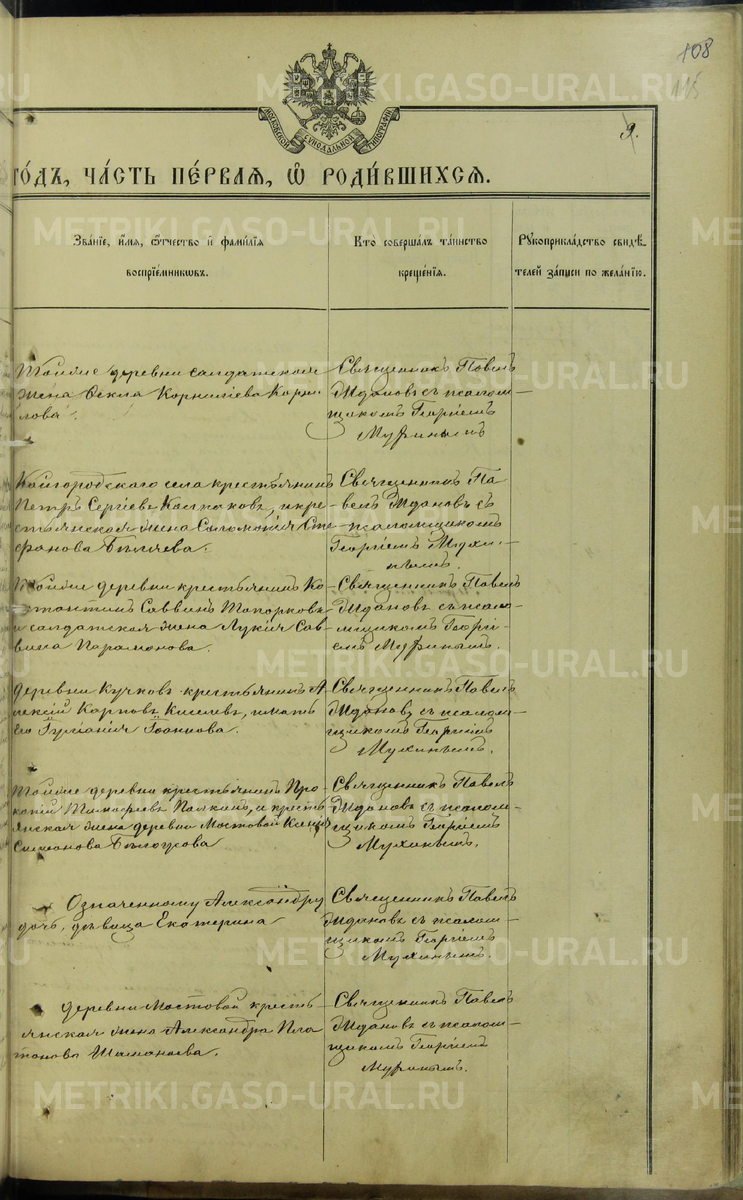 108
115
МОСКОВСКОЙ СѴНОДАЛЬНОЙ ТИПОГРАФІИ
9.
ГО́ДЪ, ЧА́СТЬ ПЕ́РВАЯ, Ѡ҆ РОДИ́ВШИХСЯ.
Зва́нїе, и҆́мя, ѻ҆́тчество и҆ фами́лїя
воспрїе́мникѡвъ.
Кто̀ соверша́лъ та́инство
креще́нїя.
Рꙋкоприкла́дство свидѣ́-
телей за́писи по жела́нїю.
Тойже деревни солдатская
жена Фекла Корниліева Корни-
лова.
Священникъ Павелъ
Ждановъ съ псалом-
щикомъ Георгіемъ
Мухинымъ
Кайгородскаго села крестьянинъ
Петръ Сергіевъ Колпаковъ, и кре-
стьянская жена Соломонія Сте-
фанова Бѣляева.
Священникъ Па-
велъ Ждановъ съ
псаломщикомъ
Георгіемъ Мухи-
нымъ.
Тойже деревни крестьянинъ Ко-
стантинъ Саввинъ Топорковъ
и солдатская жена Лукія Сав-
вина Парамонова.
Священникъ Павелъ
Ждановъ съ псало-
мщикомъ Георгі-
емъ Мухинымъ.
деревни Кучковъ крестьянинъ А-
лексій Карповъ Киселевъ, и мать
его Іуліанія Іоаннова.
Священникъ Павелъ
Ждановъ съ псалом-
щикомъ Георгіемъ
Мухинымъ.
Тойже деревни крестьянинъ Про-
копій Тимофеевъ Палкинъ, и кресть-
янская жена деревни Мостовой Ксенія
Симеонова Бѣлоусова
Священникъ Павелъ
Ждановъ съ псалом-
щикомъ Георгіемъ
Мухинымъ.
Означенному Александру
дочь, дѣвица Екатерина
Священникъ Павелъ
Ждановъ съ псалом-
щикомъ Георгіемъ
Мухинымъ.
деревни Мостовой кресть-
янская жена Александра Пла-
тонова Шаманаева.
Священникъ Павелъ
Ждановъ съ псалом-
щикомъ Георгіемъ
Мухинымъ.
METRIKI.GASO-URAL.RU